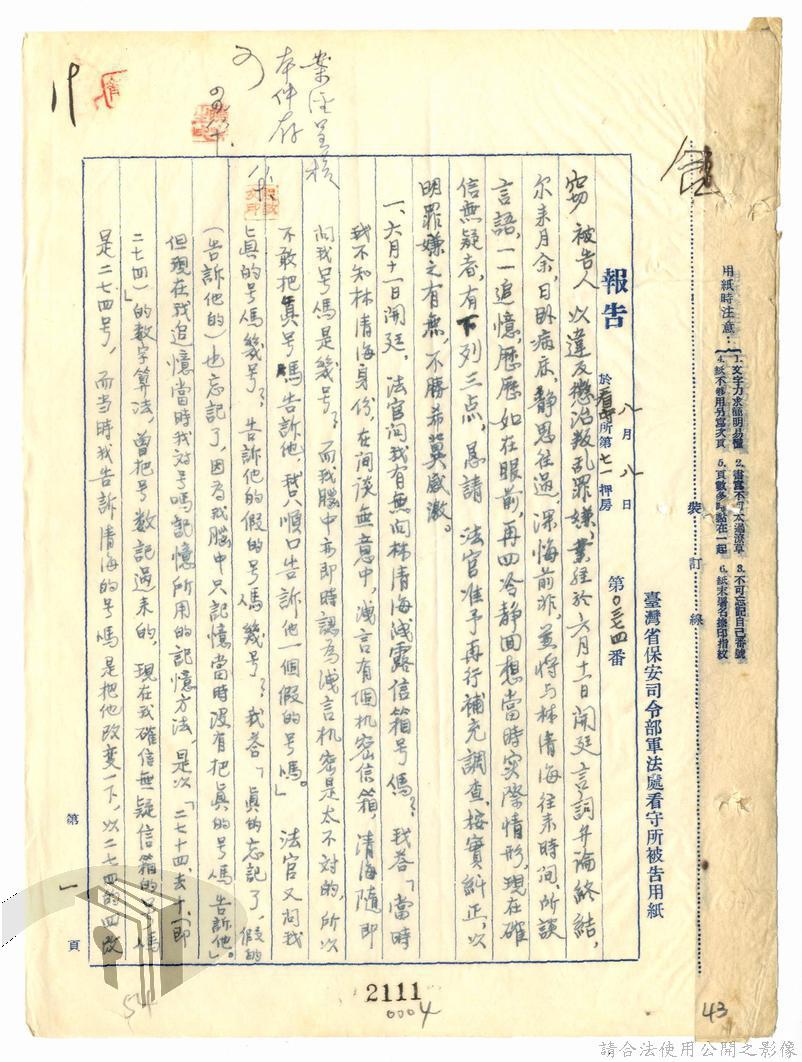 用紙時注意：
1.文字力求簡明易懂 2.書寫不可太過潦草 3.不可忘記自己番號
4.紙不夠用另寫次頁 5.頁數多時黏在一起 6.紙末署名捺印指紋
裝訂線
臺灣省保安司令部軍法處看守所被告用紙
報告 於看守所第七一押房 八月八日 第〇三七四番
竊被告人以違反懲治叛乱罪嫌，業經於六月十一日開廷言詞弁論終結，
尔来月余，日卧病床，靜思往過，深悔前非，並將与林清海往来時间、所談
言語，一一追憶，歷歷如在眼前，再四冷静回想當時実際情形，現在確
信無疑者，有下列三点，恳請 法官准予再行補充調查，按實糾正，以
明罪嫌之有無，不勝希冀感激。
一、六月十一日開廷，法官问我有無向林清海洩露信箱号碼？我答「當時
我不知林清海身份，在间談無意中，洩言有個机密信箱，清海随即
问我号碼是幾号？而我腦中亦即時認為洩言机密是太不对的，所以
不敢把眞号碼告訴他，我只順口告訴他一個假的号碼。」 法官又问我
眞的号碼幾号？告訴他的假的号碼幾号？我答「眞的忘記了，假的
(告訴他的)也忘記了，因為我腦中只記憶當時没有把眞的号碼告訴他」。
但現在我追憶當時我对号碼記憶所用的記憶方法，是以「二七十四，去十，(即
二七四)」的数字算法，曾把号数記過来的，現在我確信無疑信箱的号碼
是二七四号，而当時我告訴清海的号碼是把他改变一下，以二七四的四改
第一頁
案經呈核
本件存
可
19
54
2111
0004
43
請合法使用公開之影像